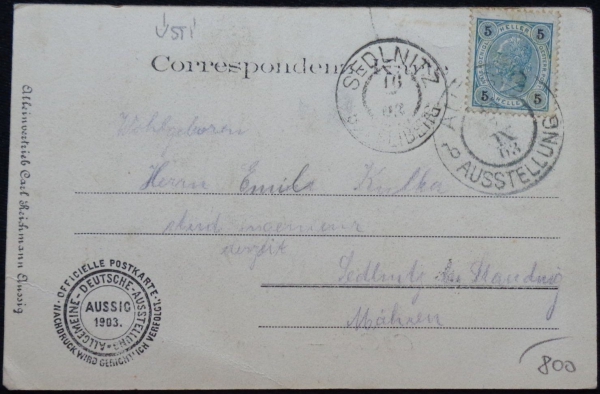 ÚSTÍ
5 HELLER 5
5 HELLER 5
Corresponden
SEDLNITZ
16
03
AUSSTELLUNG
IX
03
Wohlgeboren
Herrn Emil Kulka
stud ingenieur
derzeit
Sedlnitz bei Stauding
Mähren
Alleinvertrieb Carl Reichmann Aussig
OFFICIELLE POSTKARTE
NACHDRUCK WIRD GERICHTLICH VERFOLGT.
ALLGEMEINE-DEUTSCHE-AUSSTELLUNG
AUSSIG
1903.
800